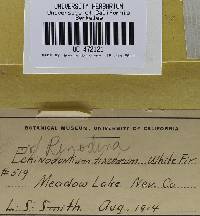 UNIVERSITY HERBARIUM
University of California
Berkeley
UC 472121
BOTANICAL MUSEUM, UNIVERSITY OF CALIFORNIA
Rinodina
White Fir
#519
Meadow Lake Nev. Co.
L. S. Smith Aug. 1914